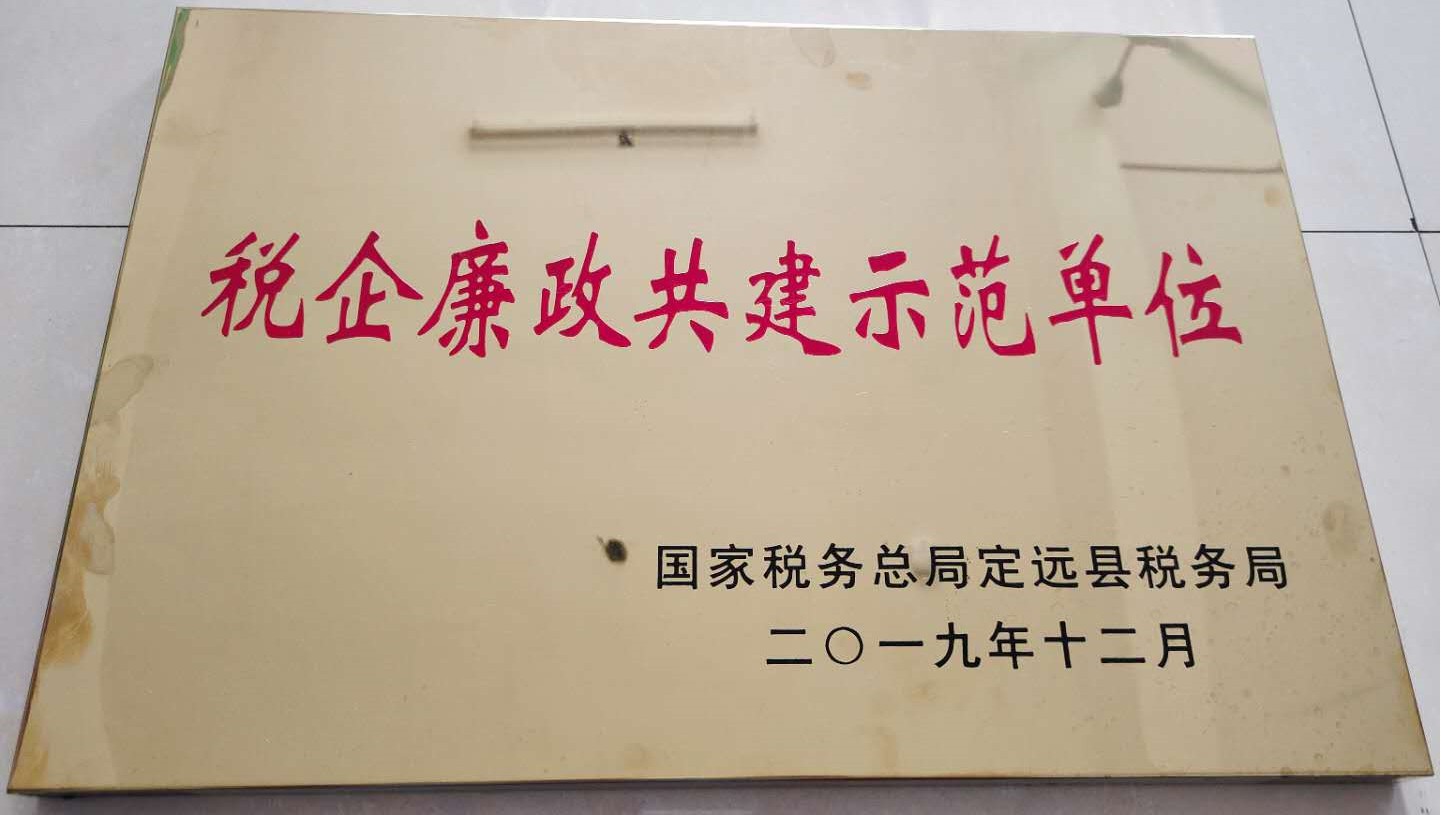 税企廉政共建示范单位
国家税务总局定远县税务局
二〇一九年十二月